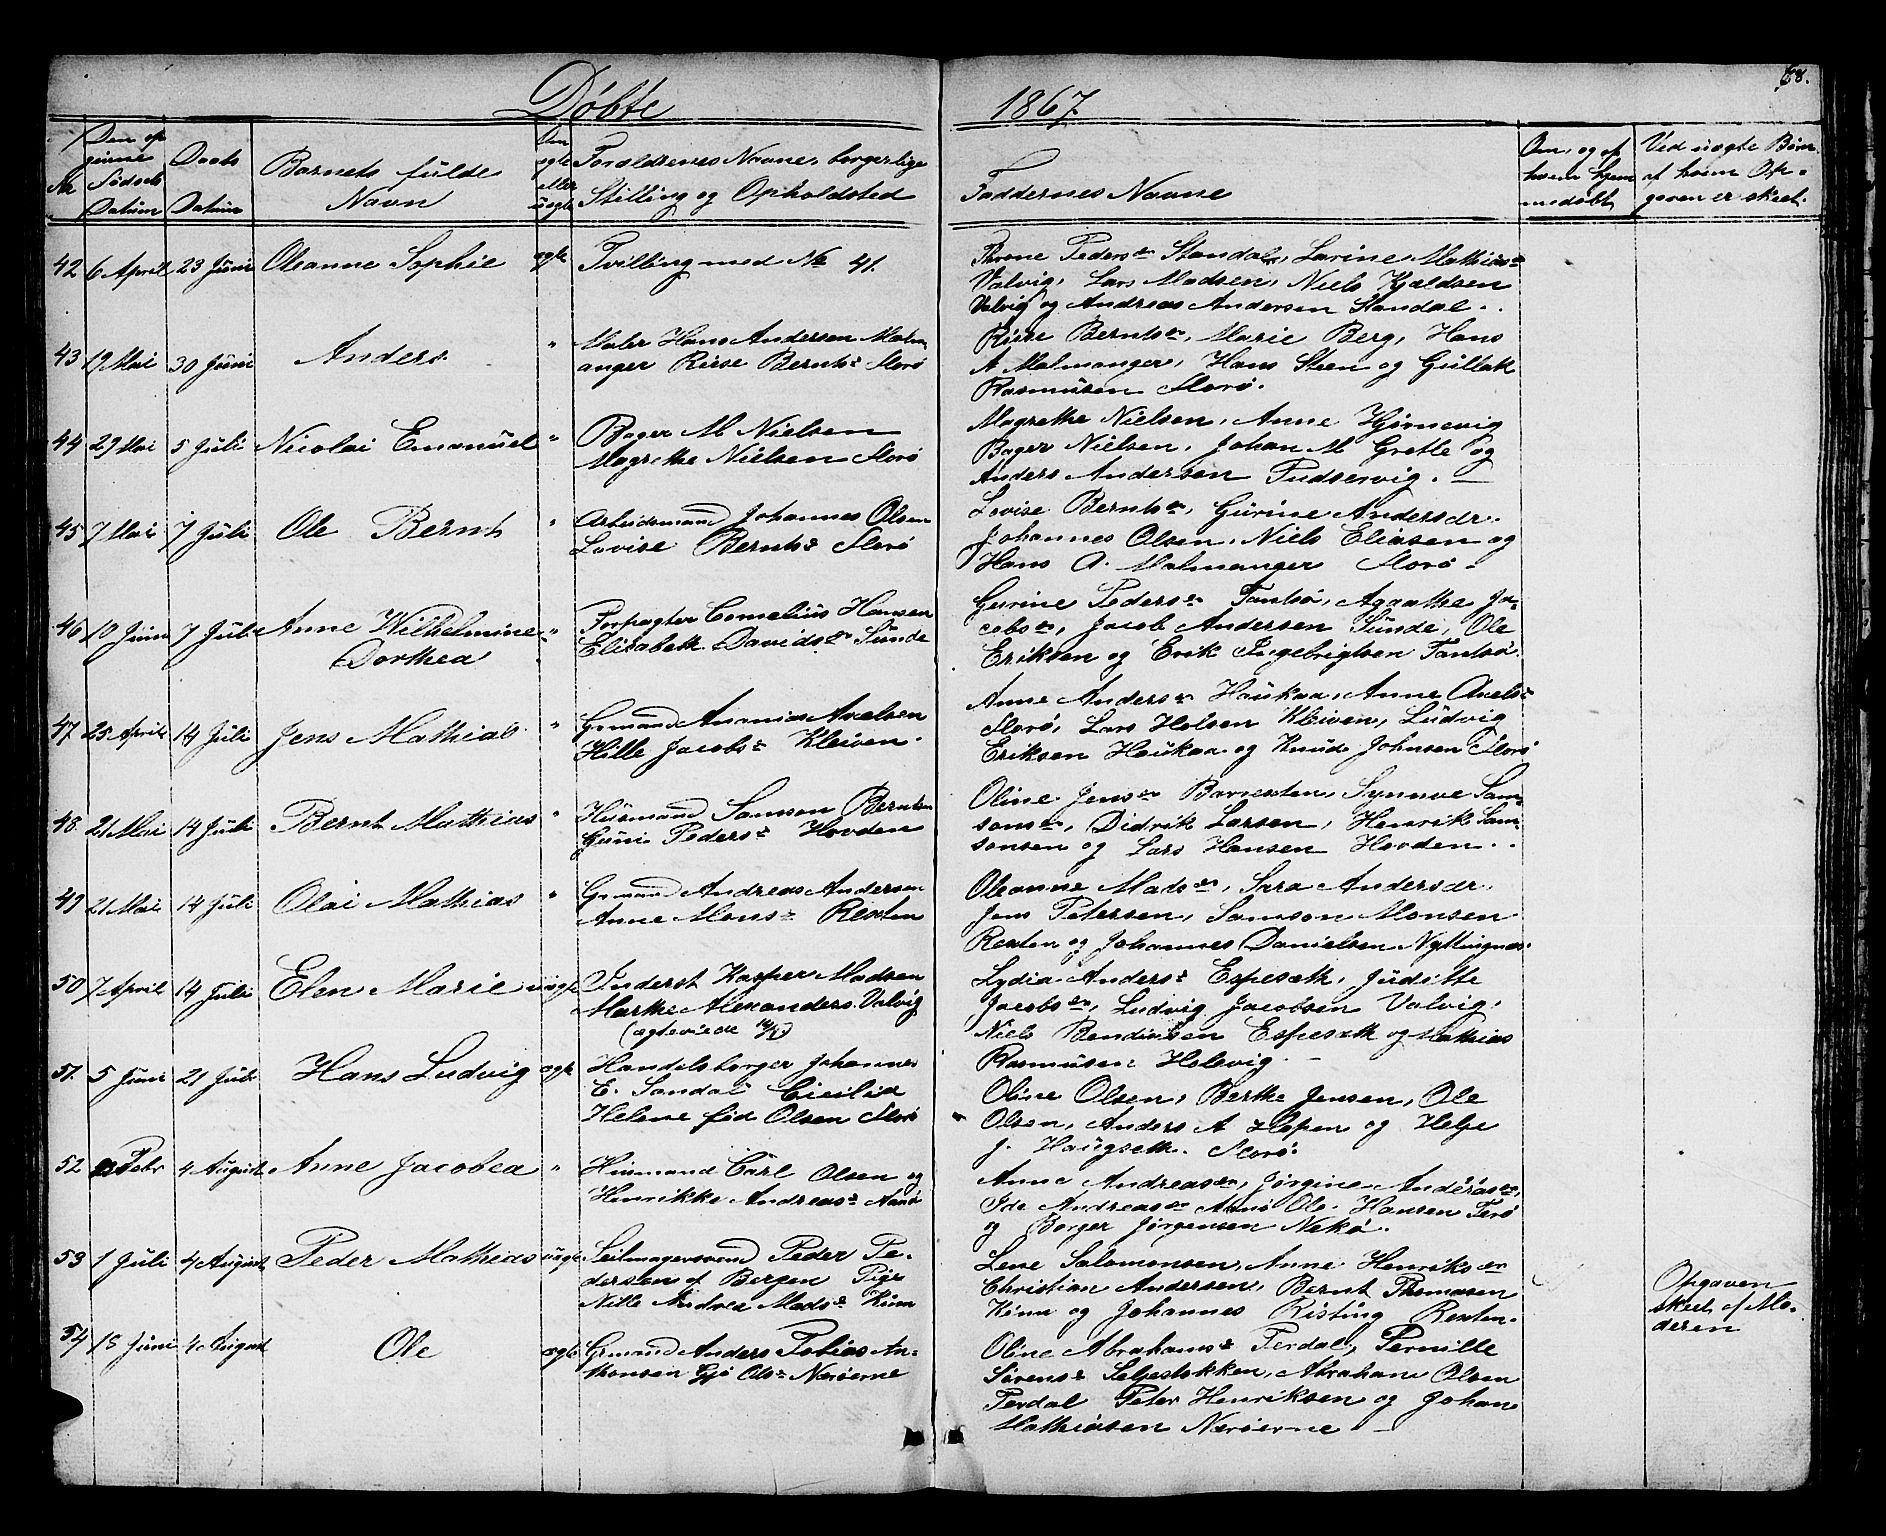 Døbte 1867.
68.
No
Den op
givne
Födsels
Datum
Daabs
Datum
Barnets fulde
Navn
Om
ægte
eller
uægte
Forældrenes Navne, borgerlige
Stilling og Opholdsted
Faddernes Navne
Om, og af
hvem hjem
medöbt
Ved uægte Børn
af hvem Op-
gaven er skeet.
42 6 April 23 Juni Oleanne Sophie ægte Tvilling med No 41.
Peders Standal, Larine Mathias
Valvig, Lars Madsen, Niels Kjeldsen
Valvig og Andreas Andersen Standal.
43 19 Mai 30 Juni Anders " Maler Hans Andersen Malm
anger Risse Bernts Florø
Risse Bernts, Marie Berg, Hans
A Malmanger, Hans Steen og Gullak
Rasmusen Florø.
44 29 Mai 5 Juli Nicolai Emanuel " Bager M Nielsen
Magrethe Nielsen Florø
Magrethe Nielsen, Anne Hjørnevig
Bager Nielsen, Johan M Grotle og
Anders Andersen
45 7 Mai 7 Juli Ole Bernt " Arbeidsmand Johannes Olsen
Lovise Bernts Florø
Lovise Bernts, Gurine Andersdr.
Johannes Olsen, Niels Eliasen og
Hans A. Malmanger Florø.
46 10 Juni 7 Juli Anne Wilhelmine
Dorthea
" Forpagter Cornelius Hansen
Elisabeth Davids Sunde
Gurine Peders Tansø, Agathe Ja-
cobs, Jacob Andersen Sunde, Ole
Eriksen og Erik Ingebrigtsen Tansø.
47 25 April 14 Juli Jens Mathias " Grmand Ananias Axelsen
Hille Jacobs Kleiven.
Anne Anders Haukaa, Anne Axels
Florø, Lars Helsen Kleiven, Ludvig
Eriksen Haukaa og Knud Johnsen Florø
48 21 Mai 14 Juli Bernt Mathias " Husmand Samson Berntsen
Guni Peders Hovden
Oline Jens Barrexten, Synnve Sam-
sons, Didrik Larsen, Henrik Sam-
sonsen og Lars Hansen Hovden.
49 21 Mai 14 Juli Olai Mathias " Grmand Andreas Andersen
Anne Mons Rexten
Oleanne Mads, Sara Andersdr.
Jens Petersen, Samson Monsen
Rexten og Johannes Danielsen Nyttingnes.
50 7 April 14 Juli Elen Marie uægte Inderst Kasper Madsen
Marthe Alexanders Valvig
(ægteviede
Lydia Anders Espesæth, Juditte
Jacobs, Ludvig Jacobsen Valvig,
Niels Bendiksen Espesæth og Mathias
Rasmusen Helsvig.
51. 5 Juni 21 Juli Hans Ludvig ægte Handelsborger Johannes
E. Sandal Cicilia
Helene fød Olsen Florø
Oline Olsen, Berthe Jensen, Ole
Olsen, Anders A Hopen og Helge
J. Haugseth. Florø.
52 Febr 4 August Anne Jacobea " Husmand Carl Olsen og
Henrikke Andreas
Anne Andreas, Jørgine Andreas,
Ide Andreas Ole Hansen
og Borger Jørgensen Nekø.
53 1 Juli 4 August Peder Mathias uægte Seilmagersvend Peder Pe-
dersen af Bergen Pige
Nille Andrea Mads Kinn
Lene Salomonsen, Anne Henriks
Christian Andersen, Bernt Thomasen
Kinn og Johannes Risting Rexten.
Opgaven
skeet af Mo-
deren
54 15 Juni 4 August Ole ægte Grmand Anders Tobias An-
thonsen Gjø Ols Nærøerne
Oline Abrahams Ferdal, Pernille
Sørens Seljestokken, Abraham Olsen
Ferdal Peter Henriksen og Johan
Mathiasen Nærøerne